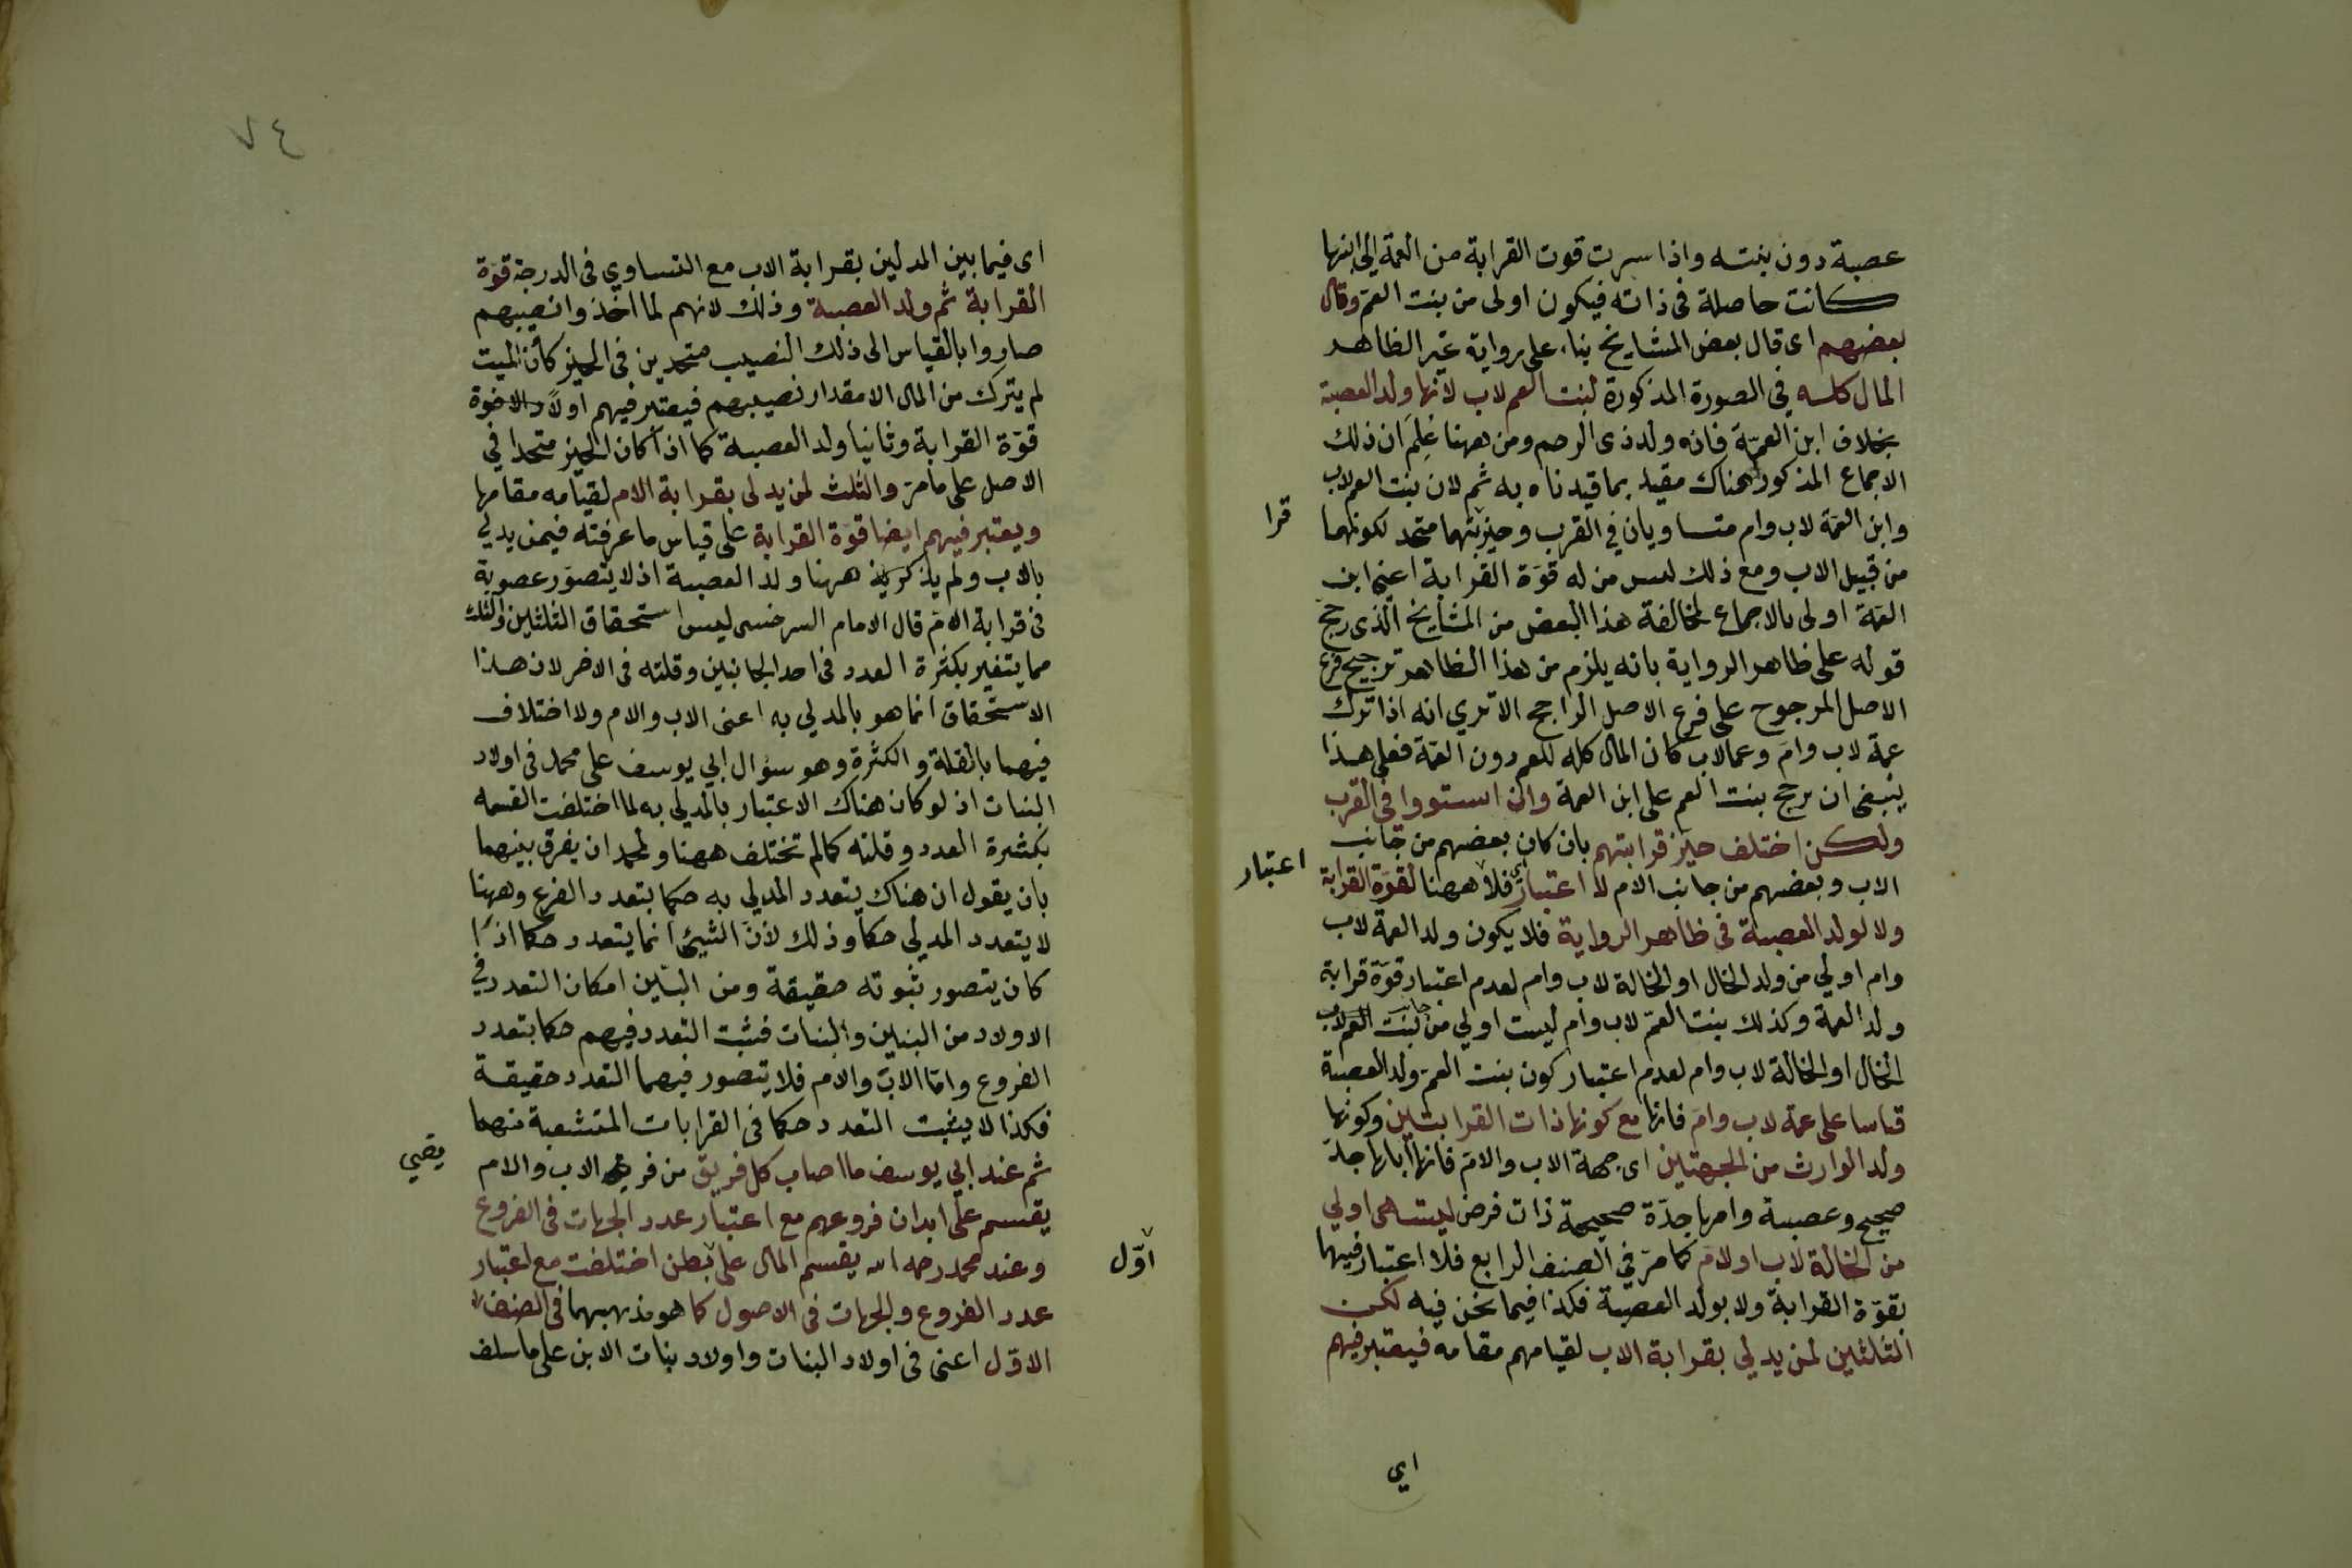 عصبة دون بنته واذا سرت قوت القرابة من العمة الى ابنها
كانت حاصلة فى ذاته فيكون اولى من بنت العم وقال
بعضهم اى قال بعض المشايخ بناء على رواية غير الظاهر
المال كله في الصورة المذكورة لبنت العم لاب لانها ولد العصبة
بخلاف ابن العمّة فانه ولد ذى الرحم ومن ههنا عُلِمَ ان ذلك
الاجماع المذكور هناك مقيد بما قيدناه به ثم لان بنت العم لاب
وابن العمة لاب وام متساويان في القرب وحيز بتهما متحد لكونهما
قرا
من قبيل الاب ومع ذلك ليس من له قوّة القرابة اعنى ابن
العمة اولى بالاجماع لمخالفة هذا البعض من المشايخ الذى رجح
قوله على ظاهر الرواية بانه يلزم من هذا الظاهر ترجيح فرع
الاصل المرجوح على فرع الاصل الراجح الا ترى انه اذا ترك
عمة لاب وام وعما لاب كان المال كله للعم دون العمة فعلى هذا
ينبغى ان يرجح بنت العم على ابن العمة وان استووا في القرب
ولكن اختلف حيز قرابتهم بان كان بعضهم من جانب
الاب وبعضهم من جانب الام لا اعتبار فلا ههنا لقوّة القرابة
اعتبار
ولا لولد العصبة فى ظاهر الرواية فلا يكون ولد العمة لاب
وام اولي من ولد الخال او الخالة لاب وام لعدم اعتبار قوّة قرابة
ولد العمة وكذلك بنت العمّ لاب وام ليست اولي من بنت
الخال او الخالة لاب وام لعدم اعتبار كون بنت العم ولد العصبة
قياسا على عمة لاب وام فانها مع كونها ذات القرابتين وكونها
ولد الوارث من الجهتين اى جهة الاب والام فانها اباها جدّ
صحيح وعصبة وامها جدّة صحيحة ذات فرض ليست هى اولي
من الخالة لاب او لام كما مرّ في الصنف الرابع فلا اعتبار فيهما
بقوّة القرابة ولا بولد العصبة فكذا فيما نحن فيه لكن
الثلثين لمن يدلي بقرابة الاب لقيامهم مقامه فيعتبر فيهم
اي
٧٤
اى فيما بين المدلين بقرابة الاب مع التساوي فى الدرجة قوّة
القرابة ثم ولد العصبة وذلك لانهم لما اخذوا نصيبهم
صاروا بالقياس الى ذلك النصيب متحدين فى الحيز كأن الميت
لم يترك من المال الا مقدار نصيبهم فيعتبر فيهم اولاً
قوّة القرابة وثانيا ولد العصبة كما اذا كان الحيز متحدا في
الاصل على ما مرّ والثلث لمن يدلى بقرابة الام لقيامه مقامها
ويعتبر فيهم ايضا قوّة القرابة على قياس ما عرفته فيمن يدلي
بالاب ولم يذكر ههنا ولد العصبة اذ لا يتصوّر عصوبة
فى قرابة الام قال الامام السرخسى ليس استحقاق الثلثين والثلث
مما يتغير بكثرة العدد فى احد الجانبين وقلته فى الاخر لان هذا
الاستحقاق انما هو بالمدلي به اعنى الاب والام ولا اختلاف
فيهما بالقلة والكثرة وهو سؤال ابي يوسف على محمد فى اولاد
البنات اذ لو كان هناك الاعتبار بالمدلي به لما اختلفت القسمه
بكثرة العدد وقلته كما لم تختلف ههنا ولمحمد ان يفرق بينهما
بان يقول ان هناك يتعدد المدلي به حكما بتعدد الفرع وههنا
لا يتعدد المدلي حكما وذلك لأنّ الشيئ انما يتعدد حكما اذا
كان يتصور ثبوته حقيقة ومن البيّن امكان التعدد في
الاولاد من البنين والبنات فثبت التعدد فيهم حكما بتعدد
الفروع وامّا الاب والام فلا يتصور فيهما التعدد حقيقة
فكذا لا يثبت التعدد حكما فى القرابات المتشعبة منهما
ثم عند ابي يوسف ما اصاب كل فريق من الاب والام
يقسم على ابدان فروعهم مع اعتبار عدد الجهات فى الفروع
وعند محمد رحمه الله يقسم المال على بطن اختلفت مع اعتبار
اوّل
عدد الفروع والجهات فى الاصول كما هو مذهبهما فى الصنف
الاوّل اعنى فى اولاد البنات واولاد بنات الابن على ما سلف